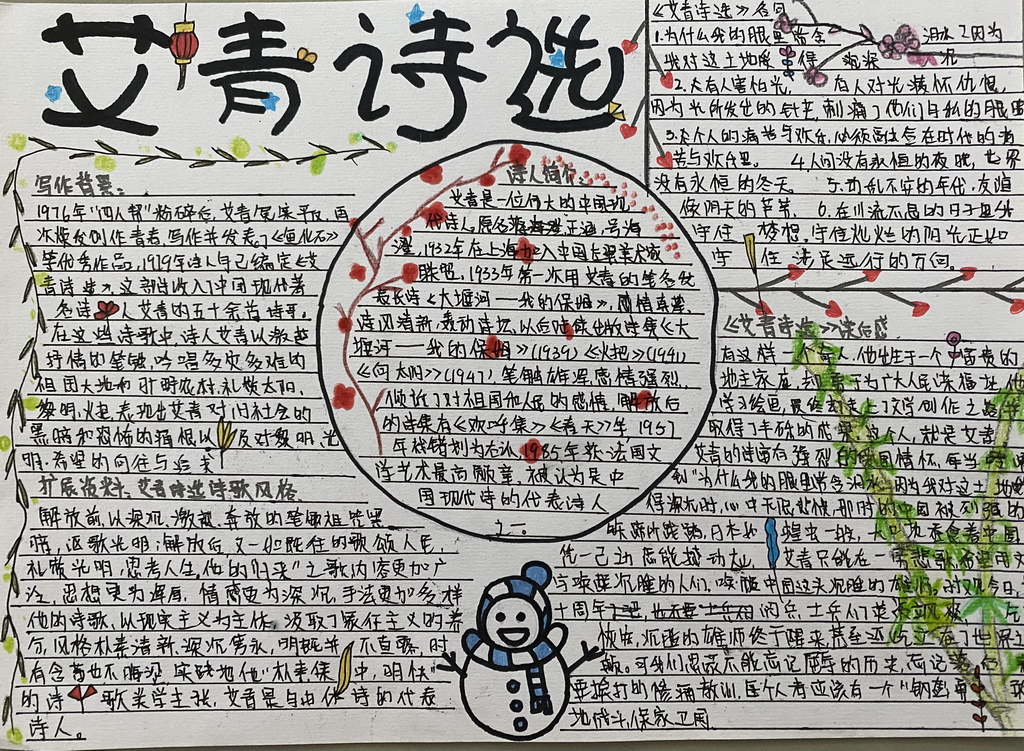 艾青诗选
写作背景:
1976年"四人帮"粉碎后,艾青冤案平反,再
次焕发创作青春,写作并发表了《鱼化石》
等优秀作品,1979年诗人自己编定《艾
青诗选》,这部诗收入中国现代著
名诗人艾青的五十余首诗哥。
在这些诗歌中,诗人艾青以激越
抒情的笔触,吟唱多灾多难的
祖国大地和
农村,礼赞太阳、
黎明、火把,表现出艾青对旧社会的
黑暗和恐怖的痛恨以及对黎明、光
明、希望的向往与追求
扩展资料:艾青诗选诗歌风格
解放前,以深沉、激越、奔放的笔触诅咒黑
暗,讴歌光明;解放后,又一如既往的歌颂人民,
礼赞光明,思考人生。他的"归来"之歌内容更加广
泛,思想更为浑厚,情感更为深沉,手法更加多样
他的诗歌,以现实主义为主体,汲取了象征主义的养
分,风格朴素清新、深沉隽永,明晰并不直露,时
有含蓄也不晦涩,实践地他"朴素集中,明快"
的诗歌美学主张,艾青是自由体诗的代表
诗人。
诗人简介:
艾青是一位伟大的中国现
代诗人,原名蒋海澄
号海
澄,1932年在上海加入中国左翼美术家
联盟,1933年第一次用艾青的笔名发
表长诗《大堰河——我的保姆》,感情真挚,
诗风清新,轰动诗坛,以后陆续出版诗集《大
堰河——我的保姆》(1939)《火把》(1941)
《向太阳》(1947),笔触雄浑,感情强烈,
倾诉了对祖国和人民的感情,解放后
的诗集有《欢呼集》《春天》等 1957
年被错划为右派,1985年获法国文
学艺术最高勋章,被认为是中
国现代诗的代表诗人
之一。
《艾青诗选》名句
1.为什么我的眼里常含泪水?因为
我对这土地爱得
深沉
2.人有害怕光,有人对光满怀仇恨,
因为光所发出的针芒,刺痛了他们自私的眼睛
3.个人的痛苦与欢乐,必须融合在时代的痛
苦与欢乐里。 4.人间没有永恒的夜晚,世界
没有永恒的冬天 5.动乱不安的年代,友谊
像阴天的芦笛 6.在川流不息的日子里
守住梦想,守住灿烂的阳光正如
守住
远行的方向。
《艾青诗选》读后感
有这样一个诗人,他出生于一个富贵的
地主家庭,却
于为广大人民谋福祉,他
学习绘画,最终却走上了文学创作之路并
取得了丰硕的成果,这个人,就是艾青
艾青的诗留有强烈的爱国情怀,每当
到"为什么我的眼里常含泪水,因为我对这土地
得深沉"时,心中无限悲愤,那时的中国被列强的
铁蹄所践踏,日本
一边吞食着半国
凭一己力怎能撼动大山
艾青只能在
与唤醒沉睡的人们,唤醒中国这头沉睡的雄狮,
十周年
的兵,士兵们英姿飒爽
仿佛,沉睡的雄师终于醒来
世界
可我们忽该不能忘记屈辱的历史,忘记落后
要挨打的惨痛教训,
个人者应该有一个"钢
地战斗,保家卫国